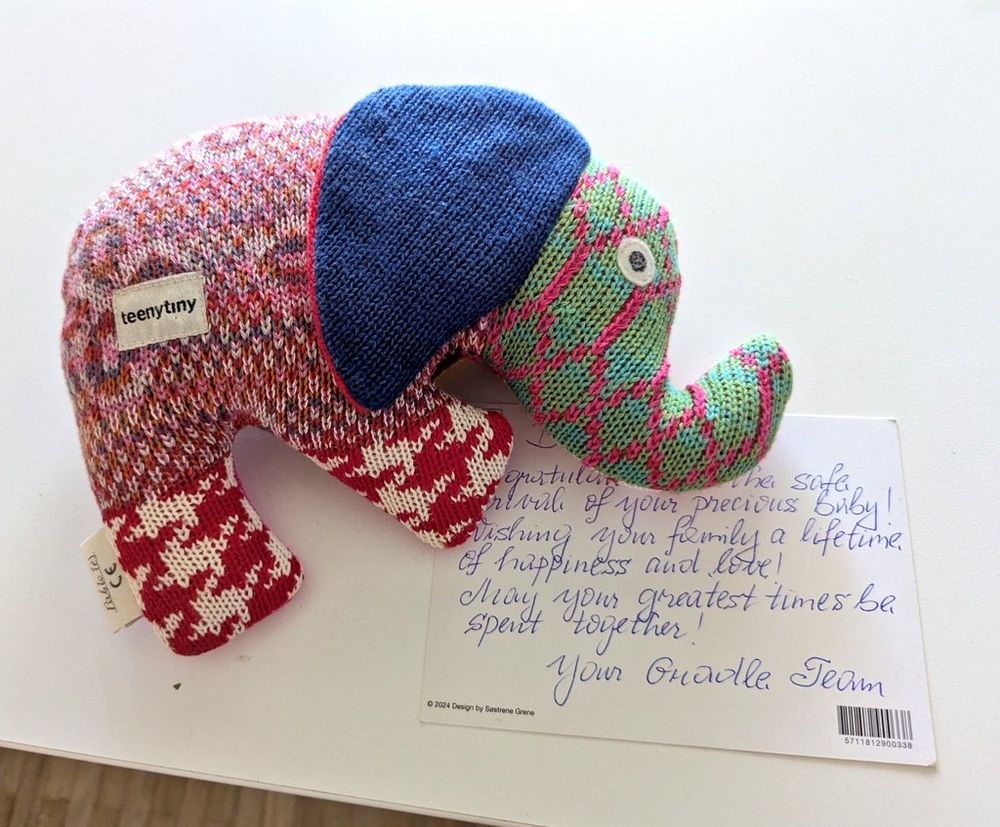 teenytiny
CE
the safe
of your precious Baby!
Wishing your family a lifetime
of happiness and love!
May your greatest times be
spent together!
Your Gradle Team
© 2024 Design by Søstrene Grene
5711812900338